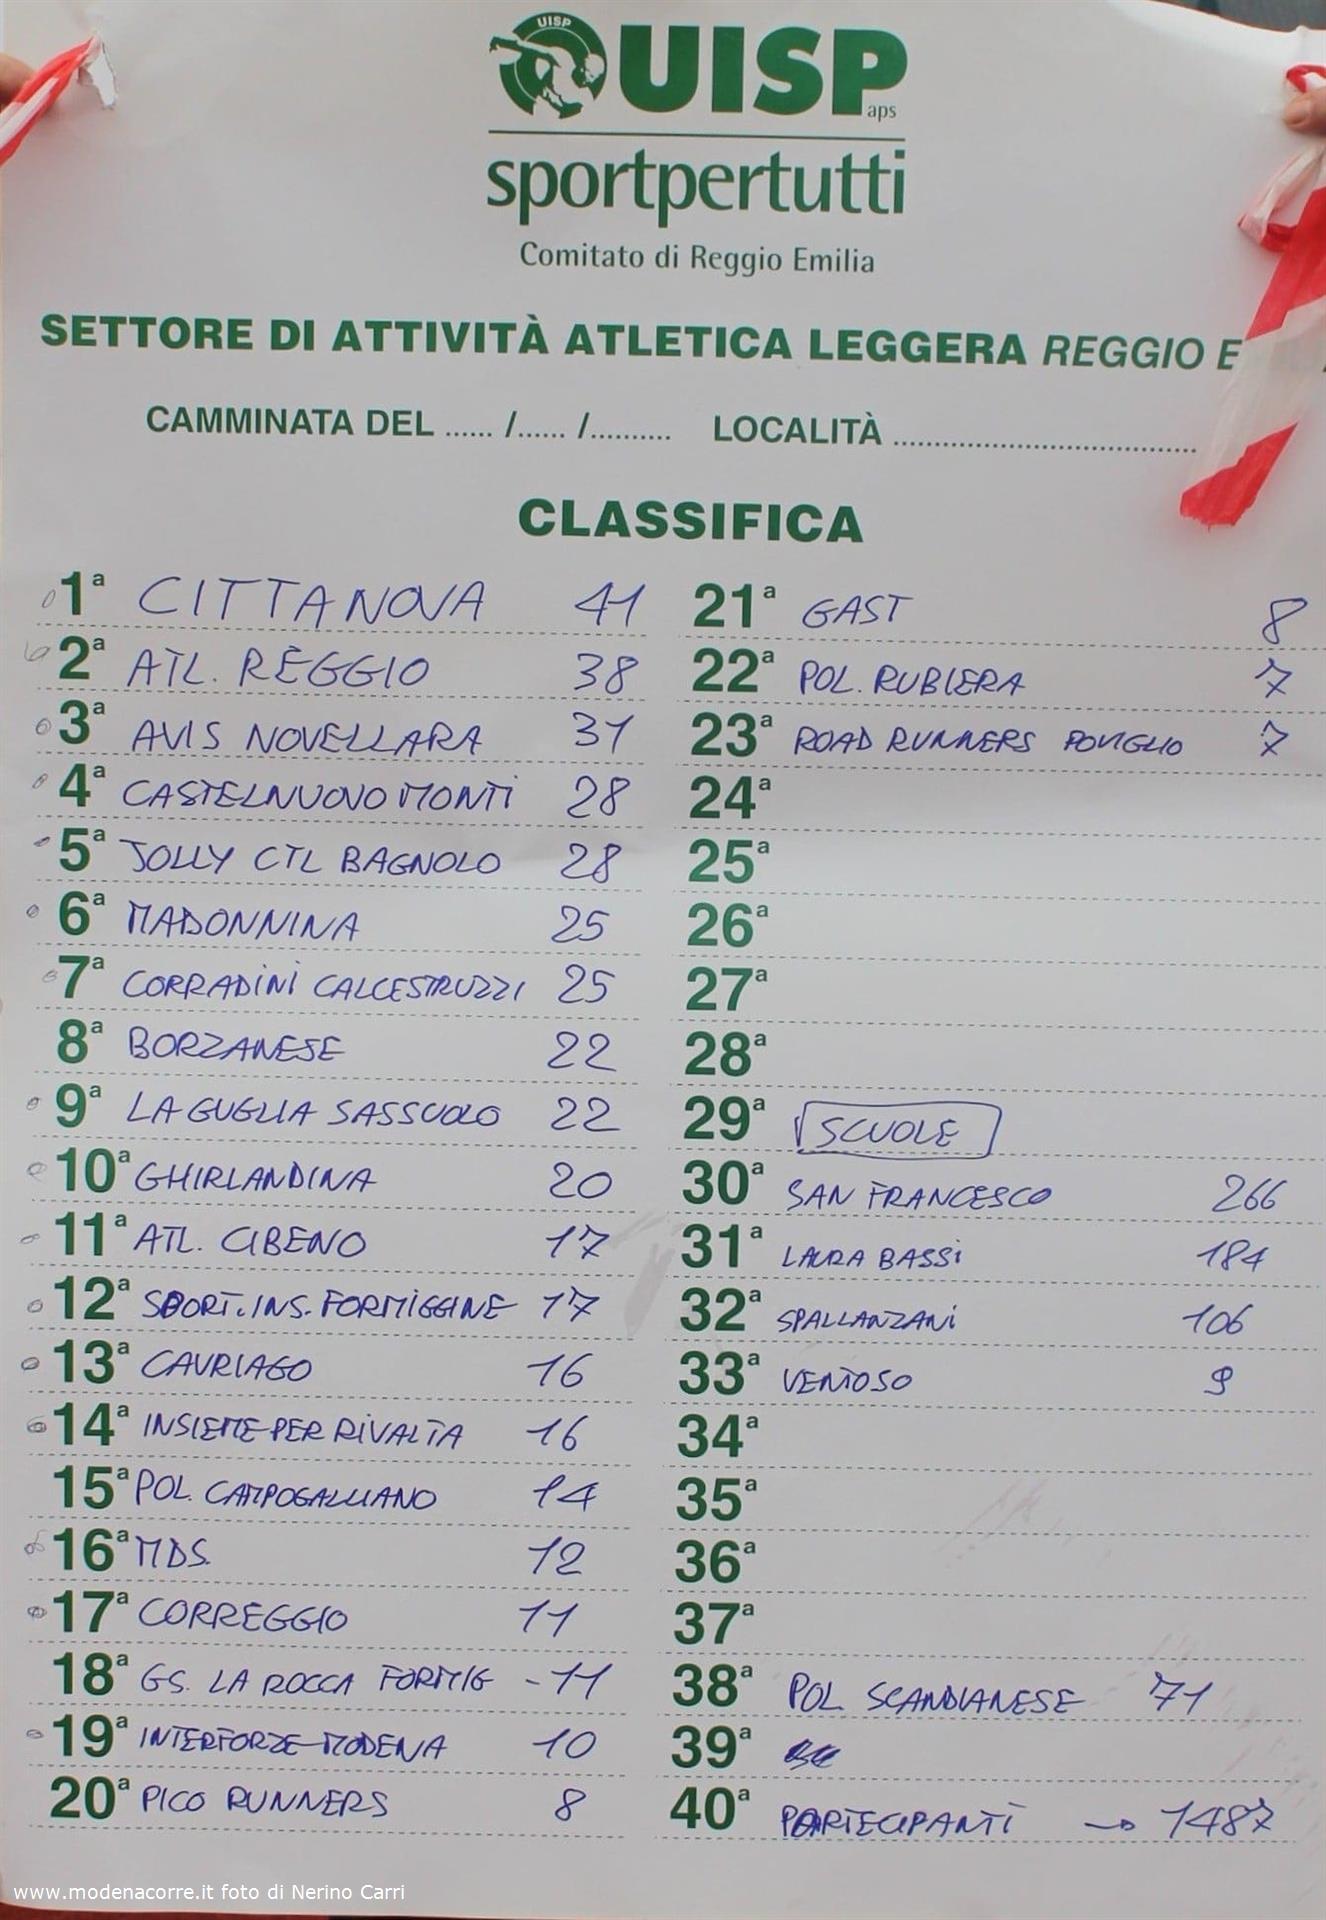 UISP
UISP
aps
sportpertutti
Comitato di Reggio Emilia
SETTORE DI ATTIVITÀ ATLETICA LEGGERA REGGIO E
CAMMINATA DEL ...... /...... /.......... LOCALITÀ ....................................
CLASSIFICA
1ª CITTANOVA 41
2ª ATL. REGGIO 38
3ª AVIS NOVELLARA 31
4ª CASTELNUOVO MONTI 28
5ª JOLLY CTL BAGNOLO 28
6ª MADONNINA 25
7ª CORRADINI CALCESTRUZZI 25
8ª BORZANESE 22
9ª LA GUGLIA SASSUOLO 22
10ª GHIRLANDINA 20
11ª ATL. CIBENO 17
12ª SPORT. INS. FORMIGGINE 17
13ª CAVRIAGO 16
14ª INSIEME PER RIVALTA 16
15ª POL. CAMPOGALLIANO 14
16ª MDS. 12
17ª CORREGGIO 11
18ª GS. LA ROCCA FORMIG - 11
19ª INTERFORZE MODENA 10
20ª PICO RUNNERS 8
21ª GAST 8
22ª POL. RUBIERA 7
23ª ROAD RUNNERS POVIGLIO 7
24ª
25ª
26ª
27ª
28ª
29ª SCUOLE
30ª SAN FRANCESCO 266
31ª LAURA BASSI 184
32ª SPALLANZANI 106
33ª VENTOSO 9
34ª
35ª
36ª
37ª
38ª POL SCANDIANESE 71
39ª
40ª PARTECIPANTI → 1487
www.modenacorre.it foto di Nerino Carri